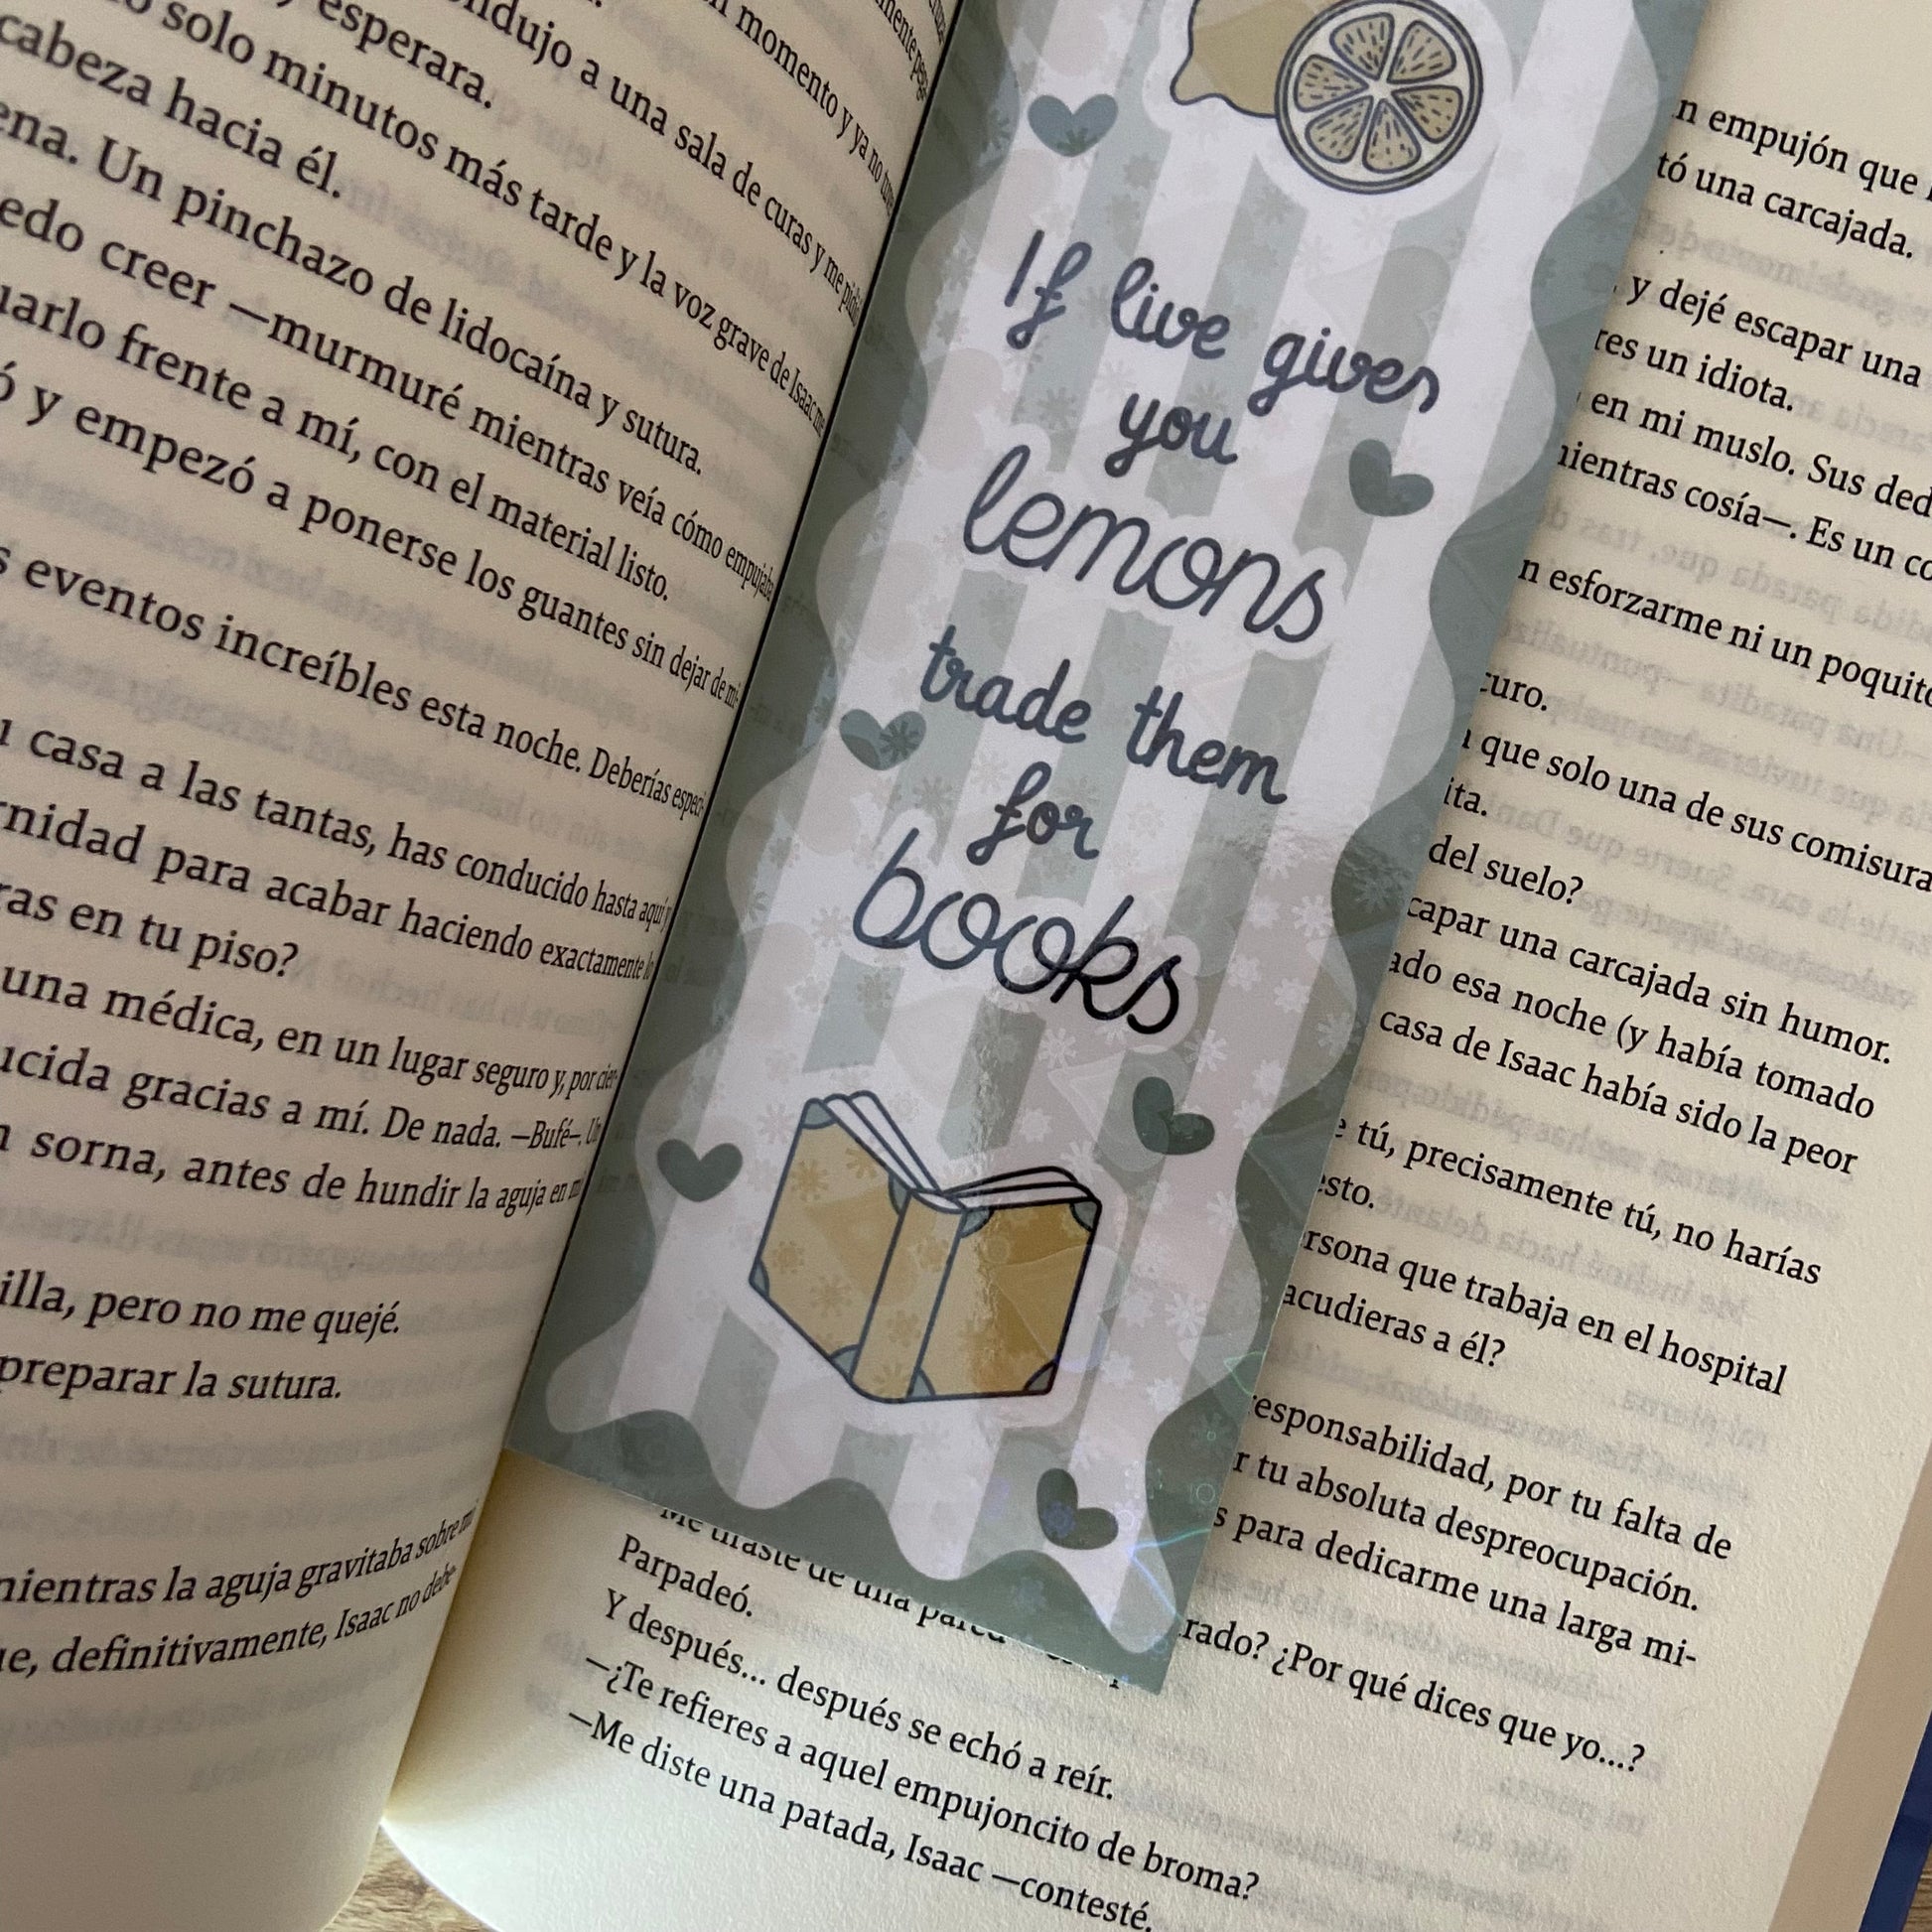 esperara.
solo minutos más tarde y la voz grave de Isaac me
cabeza hacia él.
Un pinchazo de lidocaína y sutura.
creer —murmuré mientras veía cómo empujaba
frente a mí, con el material listo.
y empezó a ponerse los guantes sin dejar de mi-
eventos increíbles esta noche. Deberías especi-
casa a las tantas, has conducido hasta aquí y
para acabar haciendo exactamente lo
en tu piso?
una médica, en un lugar seguro y, por cier-
gracias a mí. De nada. —Bufé—. Un
sorna, antes de hundir la aguja en mi
pero no me quejé.
preparar la sutura.
mientras la aguja gravitaba sobre mi
definitivamente, Isaac no debe-
If live gives
you
lemons
trade them
for
books
empujón que
una carcajada.
y dejé escapar una
un idiota.
en mi muslo. Sus
mientras cosía—. Es un
esforzarme ni un poquito
que solo una de sus
del suelo?
una carcajada sin humor.
esa noche (y había tomado
casa de Isaac había sido la peor
tú, precisamente tú, no harías
que trabaja en el hospital
acudieras a él?
responsabilidad, por tu falta de
tu absoluta despreocupación.
para dedicarme una larga mi-
Me tiraste de una pared ¿Por qué dices que yo...?
Parpadeó.
Y después... después se echó a reír.
—¿Te refieres a aquel empujoncito de broma?
—Me diste una patada, Isaac —contesté.